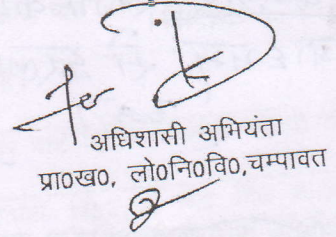 अधिशासी अभियंता
प्रा०ख०, लो०नि०वि०,चम्पावत